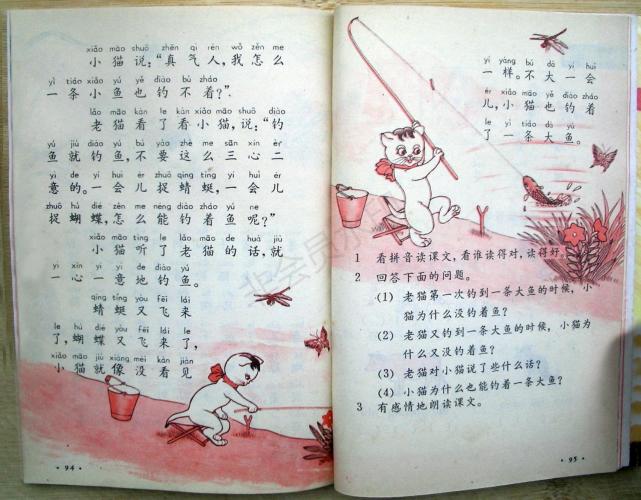 xiǎo māo shuō zhēn qì rén wǒ zěn me
小猫说：“真气人，我怎么
yì tiáo xiǎo yú yě diào bù zháo
一条小鱼也钓不着？”
lǎo māo kàn le kàn xiǎo māo shuō diào
老猫看了看小猫，说：“钓
yú jiù diào yú bú yào zhè me sān xīn èr
鱼就钓鱼，不要这么三心二
yì de yí huì ér zhuō qīng tíng yí huì ér
意的。一会儿捉蜻蜓，一会儿
zhuō hú dié zěn me néng diào zháo yú ne
捉蝴蝶，怎么能钓着鱼呢？”
xiǎo māo tīng le lǎo māo de huà jiù
小猫听了老猫的话，就
yì xīn yí yì de diào yú
一心一意地钓鱼。
qīng tíng yòu fēi lái
蜻蜓又飞来
le hú dié yòu fēi lái le
了，蝴蝶又飞来了，
xiǎo māo jiù xiàng méi kàn jiàn
小猫就像没看见
· 94 ·
yí yàng bú dà yí huì
一样。不大一会
ér xiǎo māo yě diào zháo
儿，小猫也钓着
le yì tiáo dà yú
了一条大鱼。
1 看拼音读课文，看谁读得对，读得好。
2 回答下面的问题。
(1) 老猫第一次钓到一条大鱼的时候，小
猫为什么没钓着鱼？
(2) 老猫又钓到一条大鱼的时候，小猫为
什么又没钓着鱼？
(3) 老猫对小猫说了些什么话？
(4) 小猫为什么也能钓着一条大鱼？
3 有感情地朗读课文。
· 95 ·